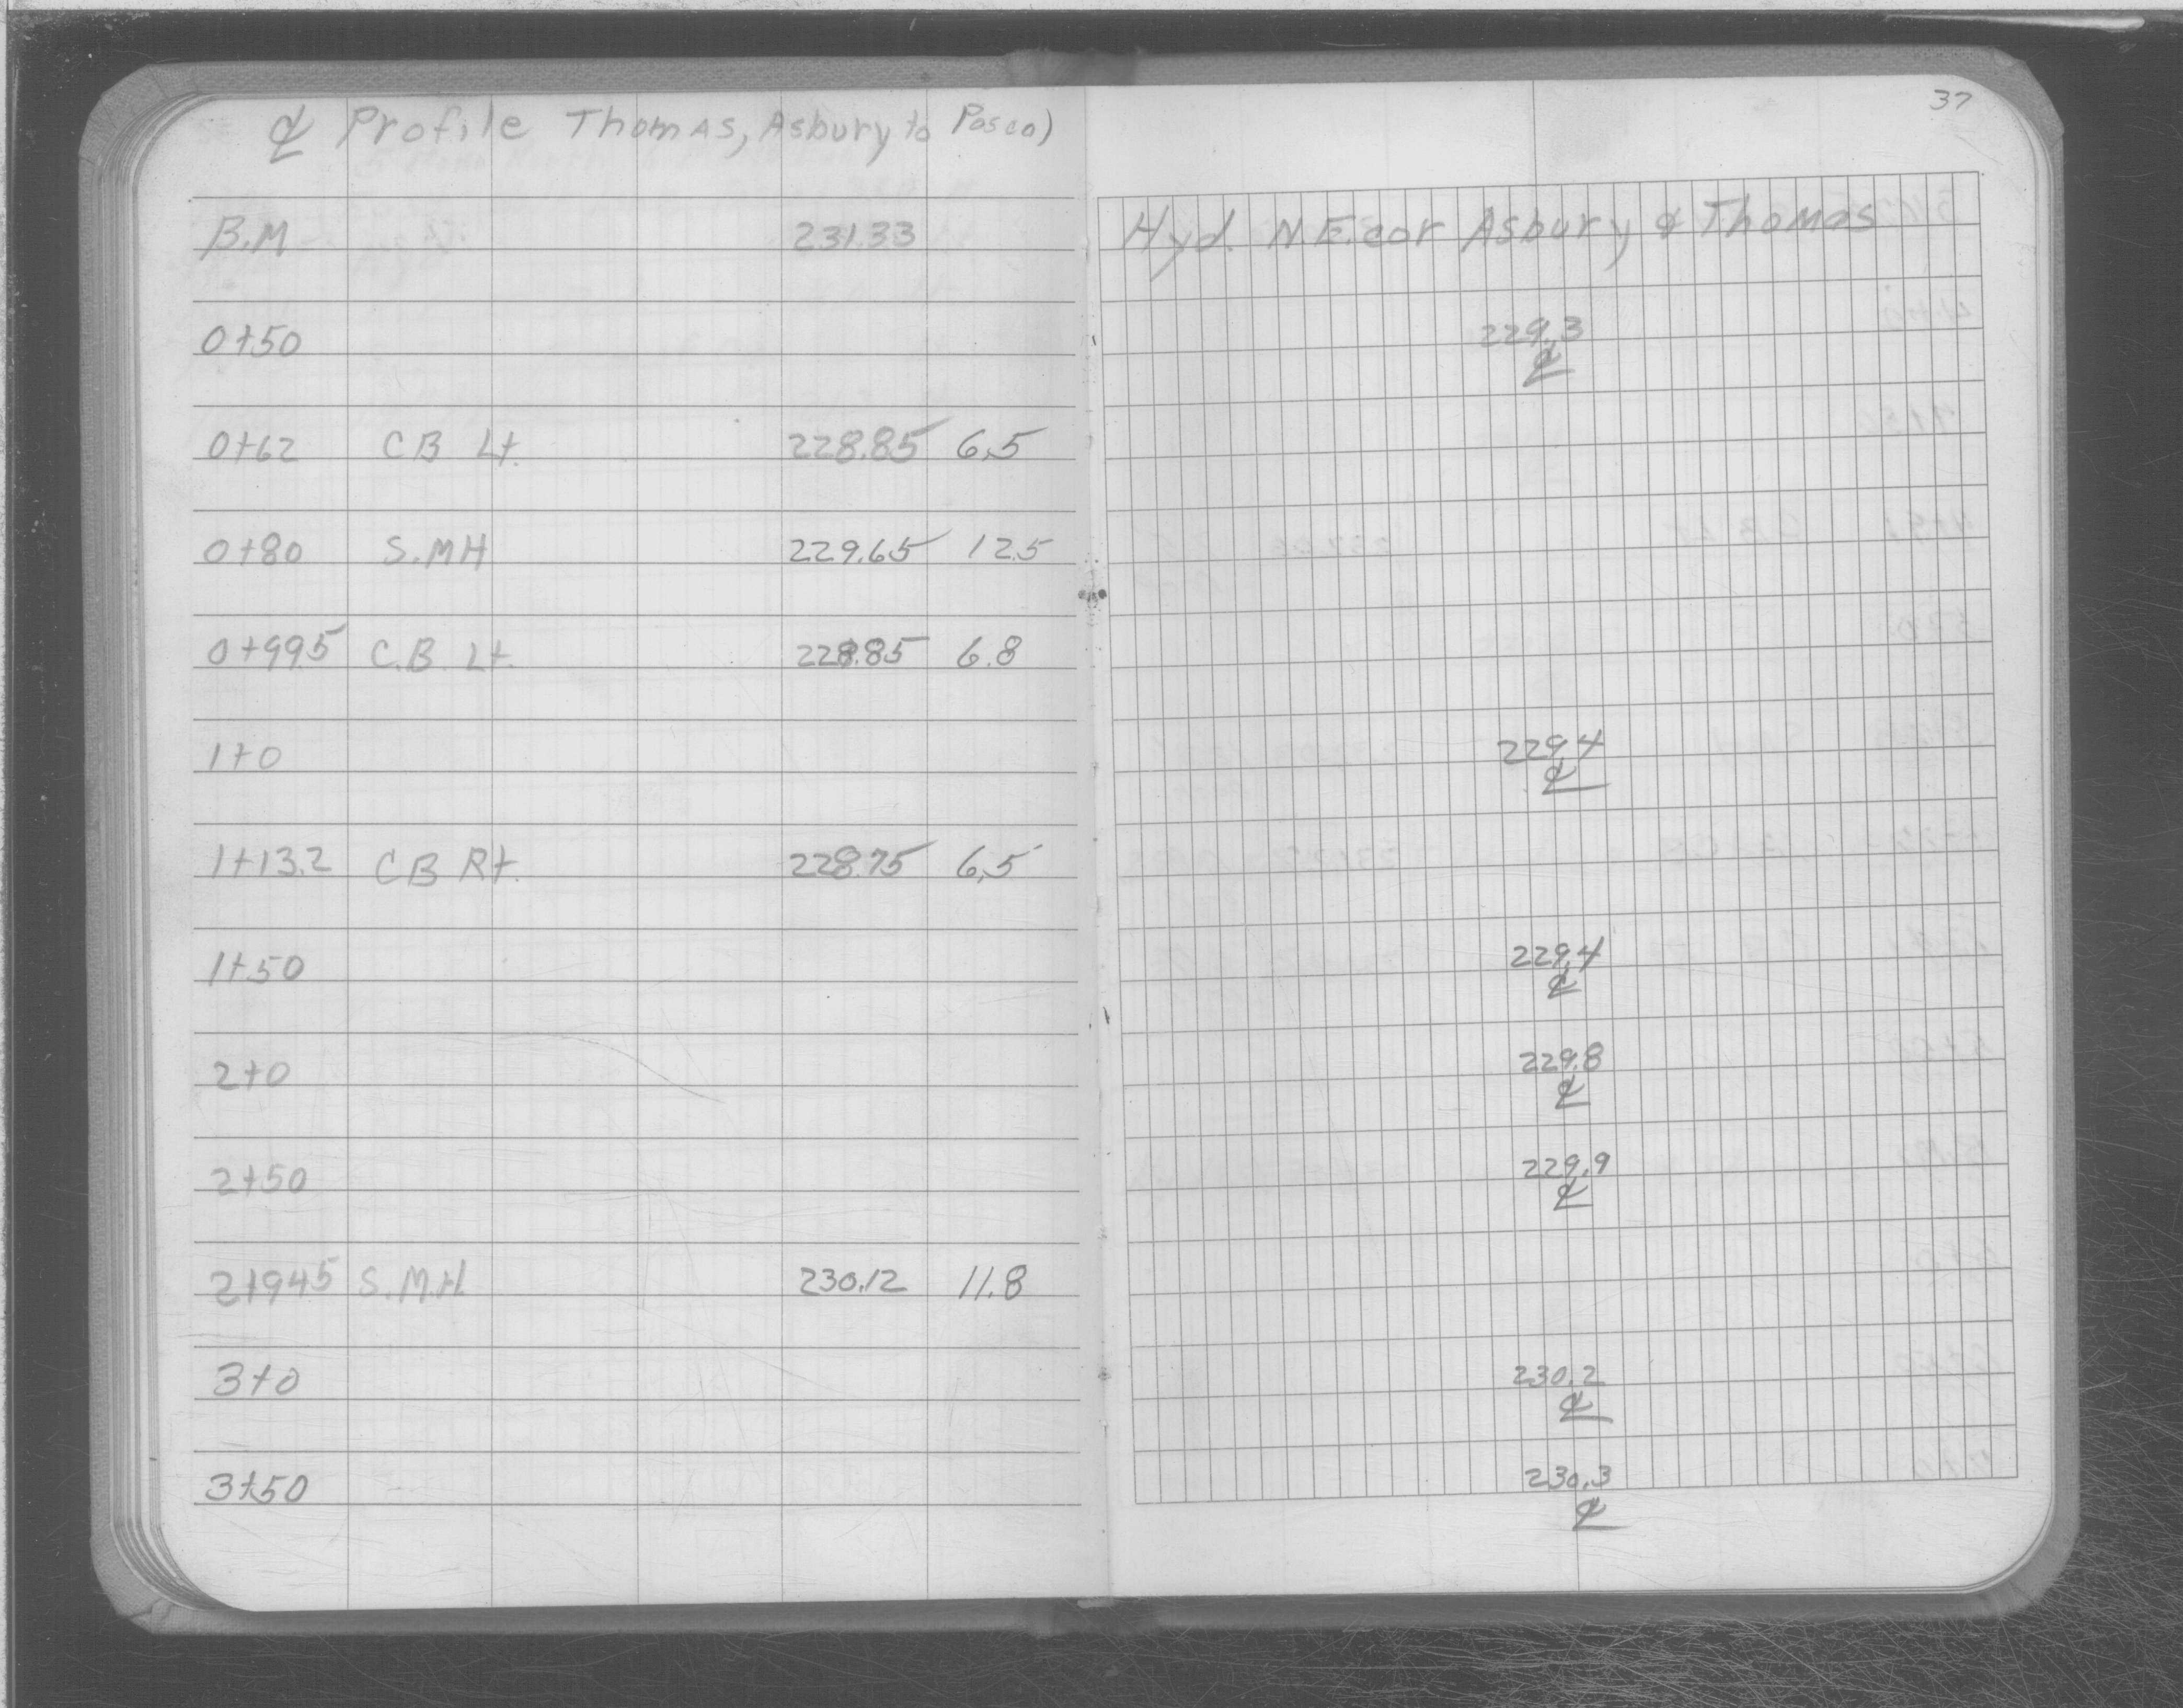 ℄ Profile Thomas, Asbury to Pasco)
37
B.M 231.33 Hyd. N E. cor Asbury & Thomas
0+50 229.3
℄
0+62 C B Lt. 228.85 6.5
0+80 S.MH 229.65 12.5
0+99.5 C.B. Lt. 228.85 6.8
1+0 229.4
℄
1+13.2 C B Rt. 228.75 6.5
1+50 229.4
℄
2+0 229.8
℄
2+50 229.9
℄
2+94.5 S.M.H. 230.12 11.8
3+0 230.2
℄
3+50 230.3
℄